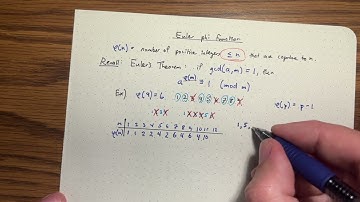 Euler phi function
φ(n) = number of positive integers ≤ n that are coprime to n.
Recall: Euler's Theorem: if gcd(a,m) = 1, then
a^φ(m) ≡ 1 (mod m)
Ex) φ(9) = 6 1 2 3 4 5 6 7 8 9 φ(p) = p - 1
1 2 3 1 2 3 4 5 6
n 1 2 3 4 5 6 7 8 9 10 11 12 1, 5,
φ(n) 1 1 2 2 4 2 6 4 6 4 10